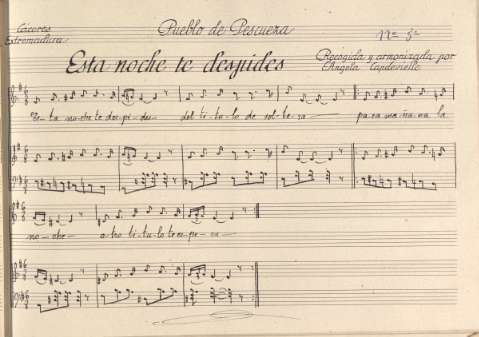 Cáceres
Extremadura
Pueblo de Pescueza
nº 5º
Esta noche te despides
Recogida y armonizada por
Angela Capdevielle
Es-ta no-che te des-pi-des del ti-tu-lo de sol-te-ra pa-ra ma-ña-na la
no-che o-tro ti-tu-lo te es-pe-ra